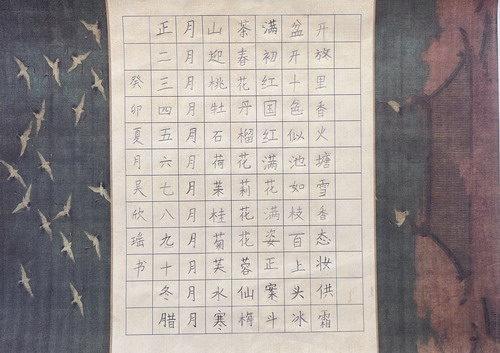 正月山茶满盆开
二月迎春初开放
三月桃花红十里
四月牡丹国色香
五月石榴红似火
六月荷花满池塘
七月茉莉花如雪
八月桂花满枝香
九月菊花姿百态
十月芙蓉正上妆
冬月水仙案头供
腊月寒梅斗冰霜
癸卯夏月吴欣瑶书